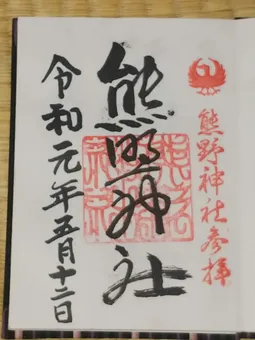 熊野神社参拝
熊野神社
令和元年五月十二日